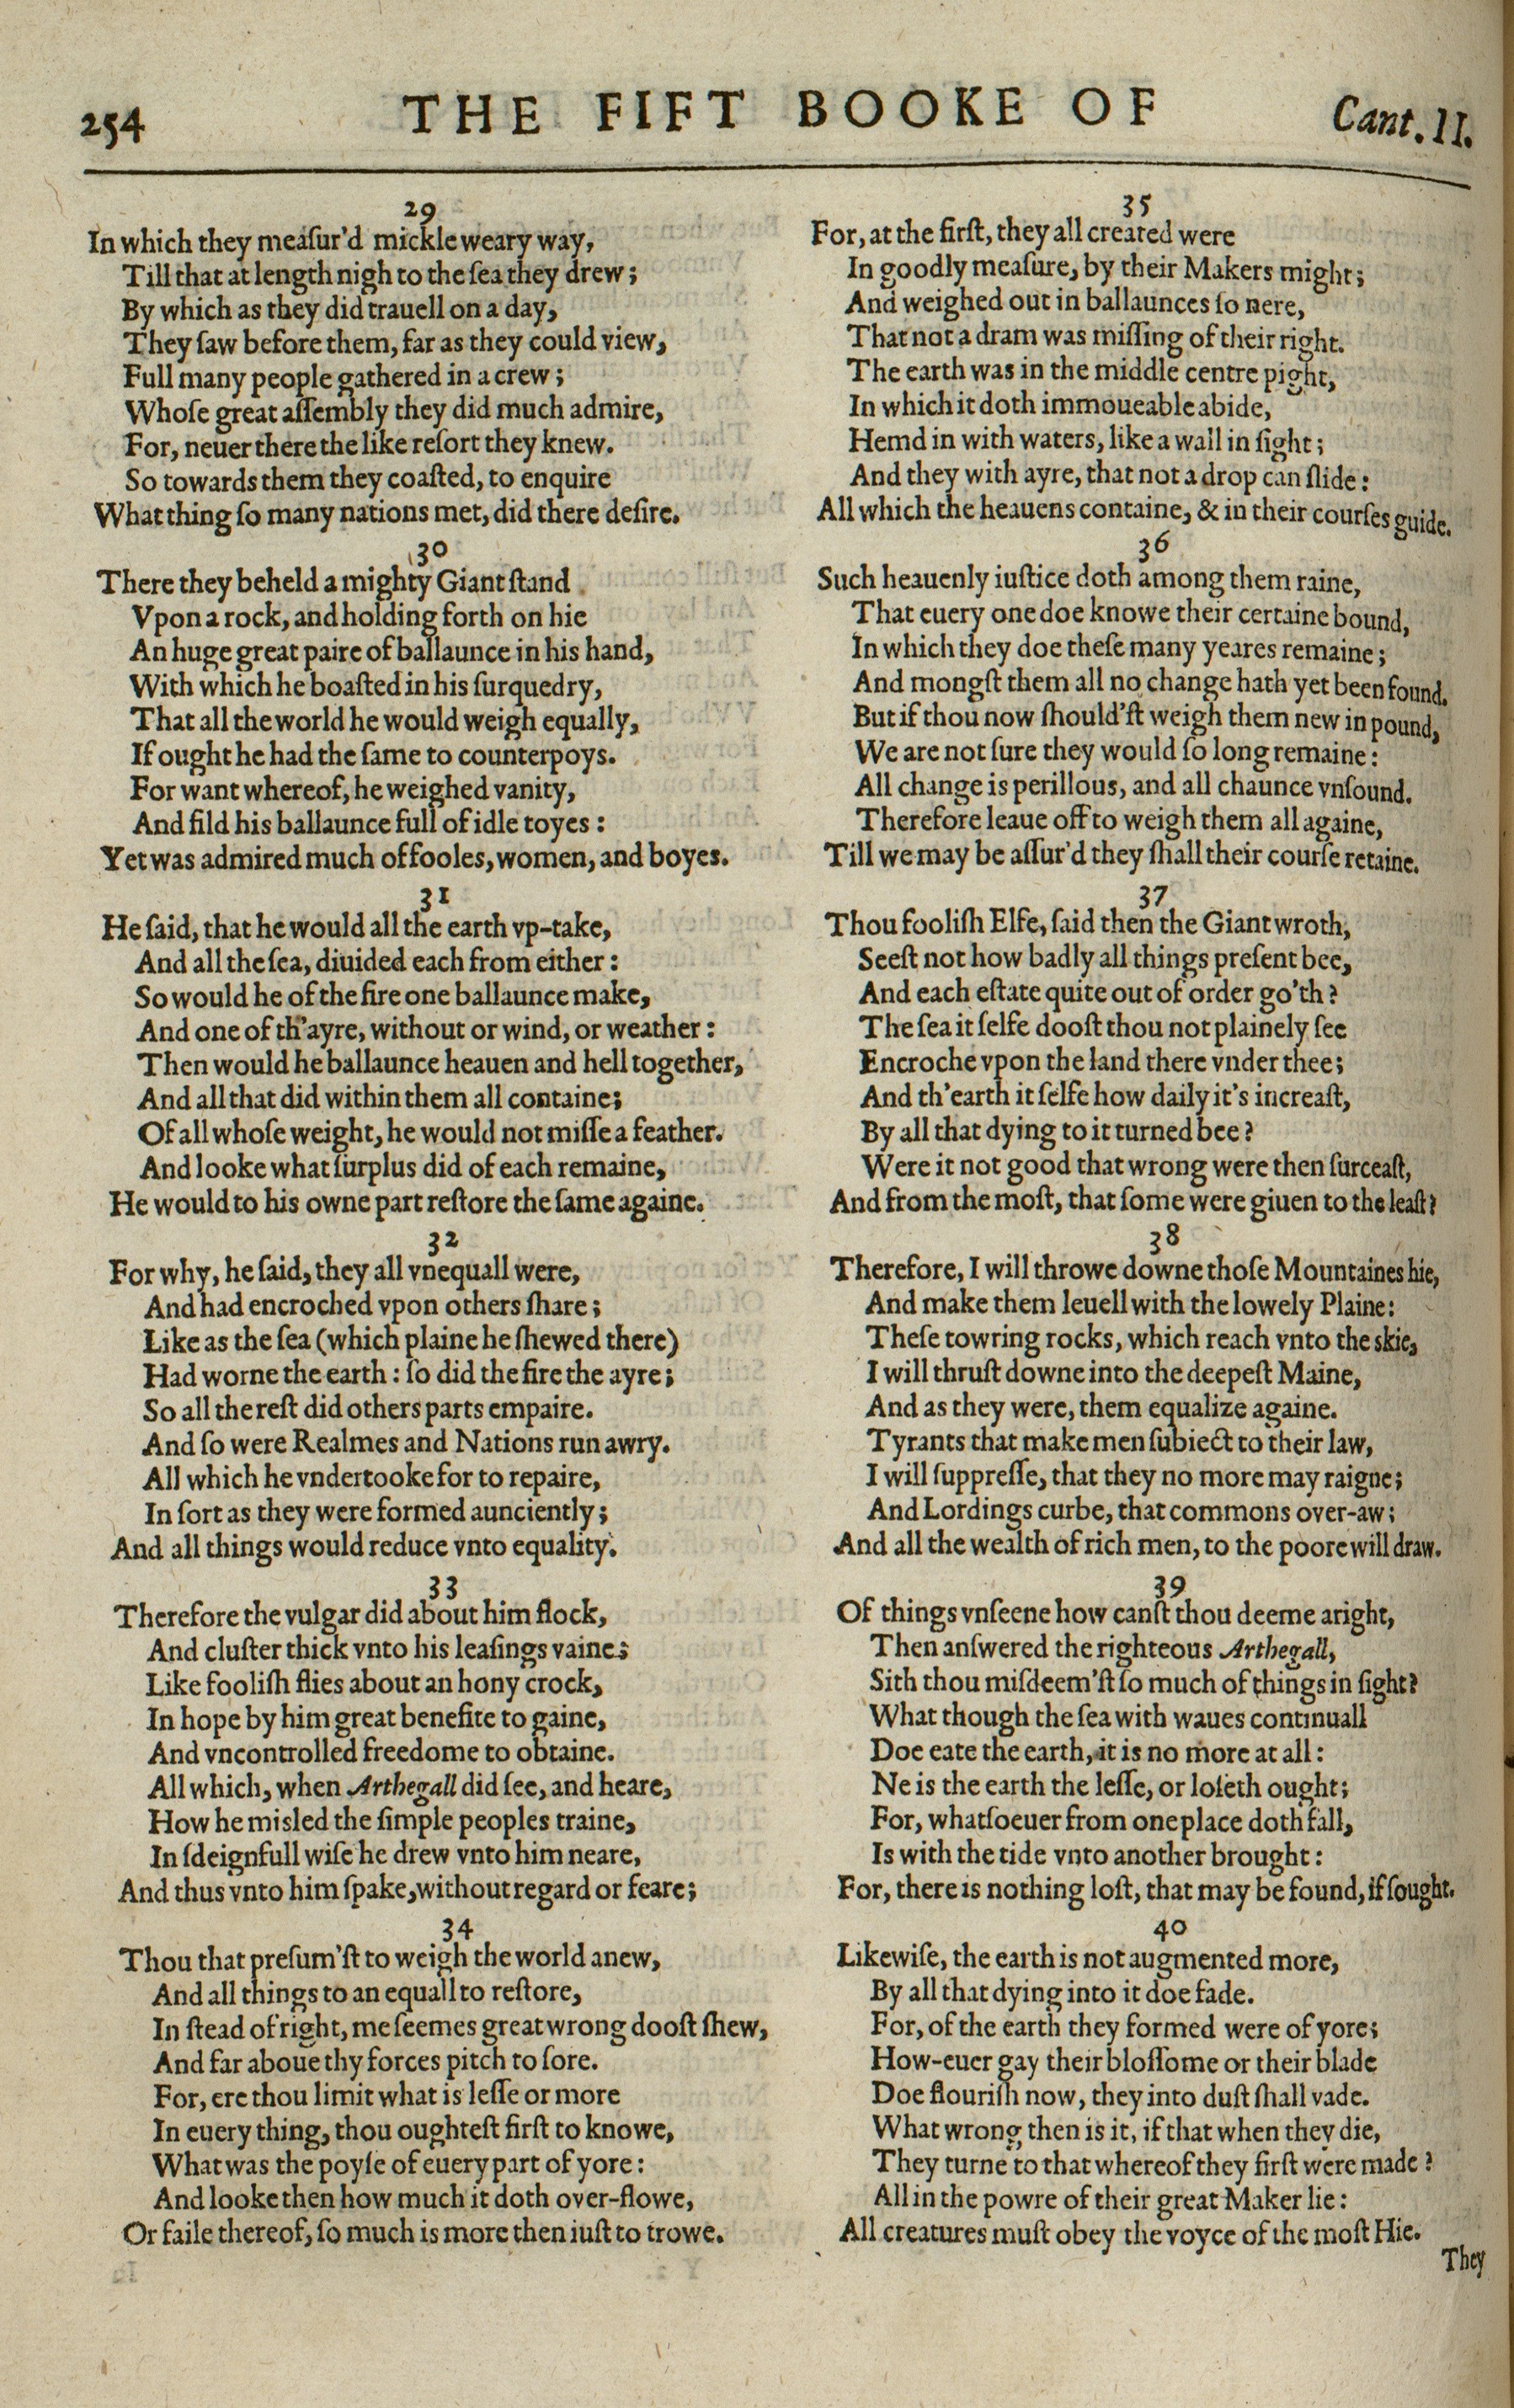 254 THE FIFT BOOKE OF Cant. II.
29
In which they meaſur'd mickle weary way,
Till that at length nigh to the ſea they drew;
By which as they did trauell on a day,
They ſaw before them, far as they could view,
Full many people gathered in a crew;
Whoſe great aſſembly they did much admire,
For, neuer there the like reſort they knew.
So towards them they coaſted, to enquire
What thing ſo many nations met, did there deſire.
30
There they beheld a mighty Giant ſtand
Vpon a rock, and holding forth on hie
An huge great paire of ballaunce in his hand,
With which he boaſted in his ſurquedry,
That all the world he would weigh equally,
If ought he had the ſame to counterpoys.
For want whereof, he weighed vanity,
And fild his ballaunce full of idle toyes:
Yet was admired much of fooles, women, and boyes.
31
He ſaid, that he would all the earth vp-take,
And all the ſea, diuided each from either:
So would he of the fire one ballaunce make,
And one of th'ayre, without or wind, or weather:
Then would he ballaunce heauen and hell together,
And all that did within them all containe;
Of all whoſe weight, he would not miſſe a feather.
And looke what ſurplus did of each remaine,
He would to his owne part reſtore the ſame againe.
32
For why, he ſaid, they all vnequall were,
And had encroched vpon others ſhare;
Like as the ſea (which plaine he ſhewed there)
Had worne the earth: ſo did the fire the ayre;
So all the reſt did others parts empaire.
And ſo were Realmes and Nations run awry.
All which he vndertooke for to repaire,
In ſort as they were formed aunciently;
And all things would reduce vnto equality.
33
Therefore the vulgar did about him flock,
And cluſter thick vnto his leaſings vaine;
Like fooliſh flies about an hony crock,
In hope by him great benefite to gaine,
And vncontrolled freedome to obtaine.
All which, when Arthegall did ſee, and heare,
How he miſled the ſimple peoples traine,
In ſdeignfull wiſe he drew vnto him neare,
And thus vnto him ſpake, without regard or feare;
34
Thou that preſum'ſt to weigh the world anew,
And all things to an equall to reſtore,
In ſtead of right, me ſeemes great wrong dooſt ſhew,
And far aboue thy forces pitch to ſore.
For, ere thou limit what is leſſe or more
In euery thing, thou oughteſt firſt to knowe,
What was the poyſe of euery part of yore:
And looke then how much it doth over-flowe,
Or faile thereof, ſo much is more then iuſt to trowe.
35
For, at the firſt, they all created were
In goodly meaſure, by their Makers might;
And weighed out in ballaunces ſo nere,
That not a dram was miſſing of their right.
The earth was in the middle centre pight,
In which it doth immoueable abide,
Hemd in with waters, like a wall in ſight;
And they with ayre, that not a drop can ſlide:
All which the heauens containe, & in their courſes guide.
36
Such heauenly iuſtice doth among them raine,
That euery one doe knowe their certaine bound,
In which they doe theſe many yeares remaine;
And mongſt them all no change hath yet been found.
But if thou now ſhould'ſt weigh them new in pound,
We are not ſure they would ſo long remaine:
All change is perillous, and all chaunce vnſound.
Therefore leaue off to weigh them all againe,
Till we may be aſſur'd they ſhall their courſe retaine.
37
Thou fooliſh Elfe, ſaid then the Giant wroth,
Seeſt not how badly all things preſent bee,
And each eſtate quite out of order go'th?
The ſea it ſelfe dooſt thou not plainely ſee
Encroche vpon the land there vnder thee;
And th'earth it ſelfe how daily it's increaſt,
By all that dying to it turned bee?
Were it not good that wrong were then ſurceaſt,
And from the moſt, that ſome were giuen to the leaſt?
38
Therefore, I will throwe downe thoſe Mountaines hie,
And make them leuell with the lowely Plaine:
Theſe towring rocks, which reach vnto the skie,
I will thruſt downe into the deepeſt Maine,
And as they were, them equalize againe.
Tyrants that make men ſubiect to their law,
I will ſuppreſſe, that they no more may raigne;
And Lordings curbe, that commons over-aw;
And all the wealth of rich men, to the poore will draw.
39
Of things vnſeene how canſt thou deeme aright,
Then anſwered the righteous Arthegall,
Sith thou miſdeem'ſt ſo much of things in ſight?
What though the ſea with waues continuall
Doe eate the earth, it is no more at all:
Ne is the earth the leſſe, or loſeth ought;
For, whatſoeuer from one place doth fall,
Is with the tide vnto another brought:
For, there is nothing loſt, that may be found, if ſought.
40
Likewiſe, the earth is not augmented more,
By all that dying into it doe fade.
For, of the earth they formed were of yore;
How-euer gay their bloſſome or their blade
Doe flouriſh now, they into duſt ſhall vade.
What wrong then is it, if that when they die,
They turne to that whereof they firſt were made?
All in the powre of their great Maker lie:
All creatures muſt obey the voyce of the moſt Hie.
They